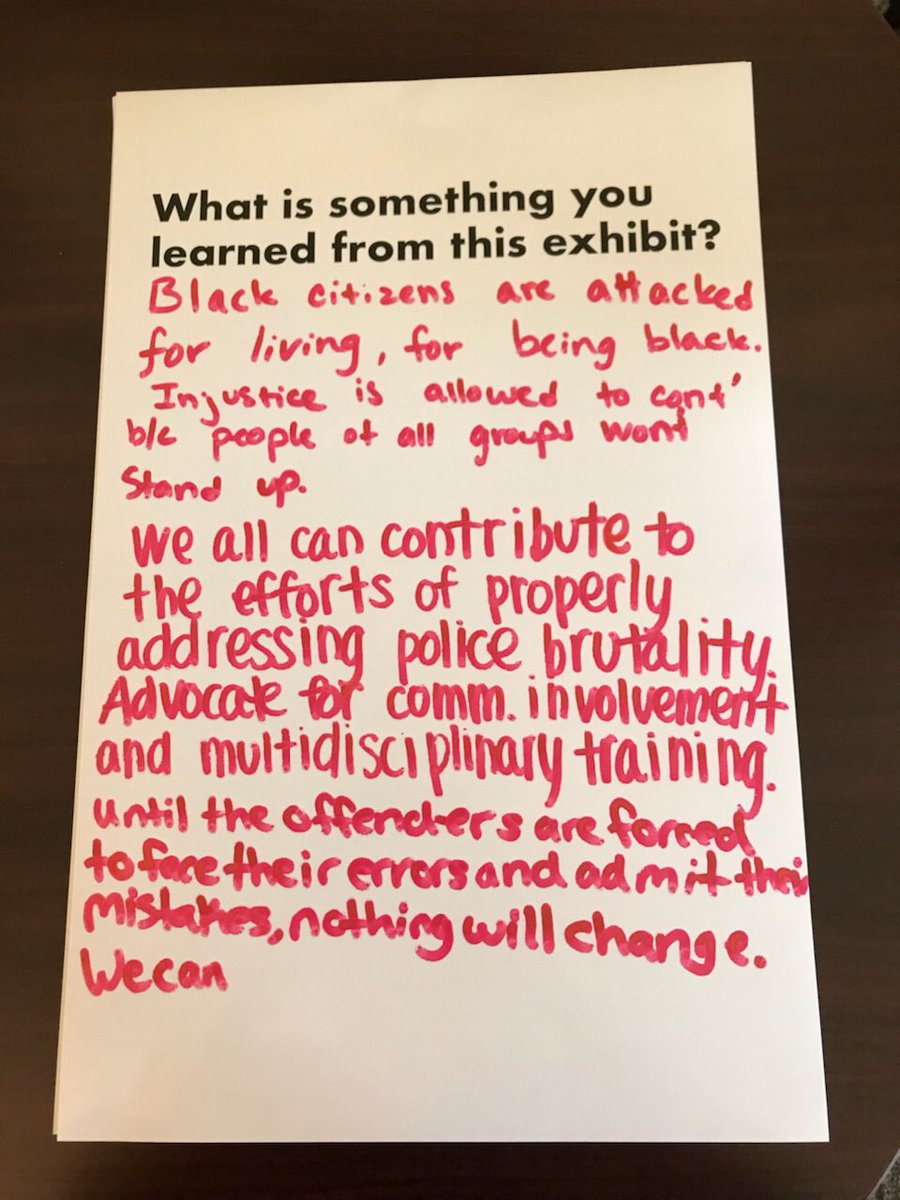 What is something you
learned from this exhibit?
Black citizens are attacked
for living, for being black.
Injustice is allowed to cont'
b/c people of all groups wont
Stand up.
We all can contribute to
the efforts of properly
addressing police brutality.
Advocate for comm. involvement
and multidisciplinary training.
Until the offenders are forced
to face their errors and admit their
mistakes, nothing will change.
We can